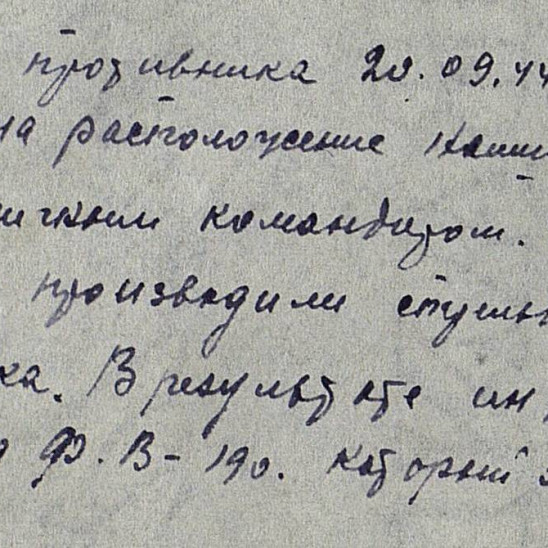 противника 20.09.44
на расположение наши
ичным командиром.
производили стрель
ка. В результате
Ф.В-190. который